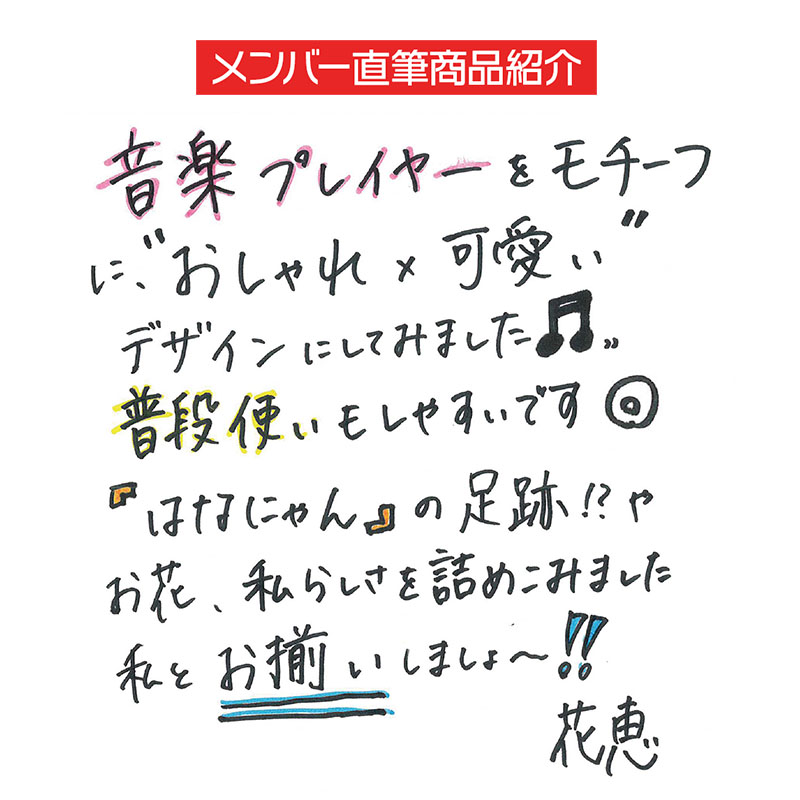 メンバー直筆商品紹介
音楽プレイヤーをモチーフ
に、"おしゃれ×可愛い"
デザインにしてみました♫〟
普段使いもしやすいです◎
『はなにゃん』の足跡!?や
お花、私らしさを詰めこみました
私とお揃いしましょ〜!!
花恵